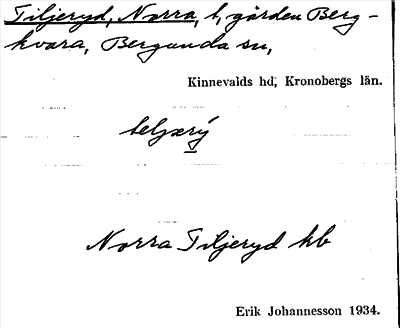 Tiljeryd, Norra, t, gården Berg-
kvara, Bergunda sn,
Kinnevalds hd, Kronobergs län.
Norra Tiljeryd kb
Erik Johannesson 1934.